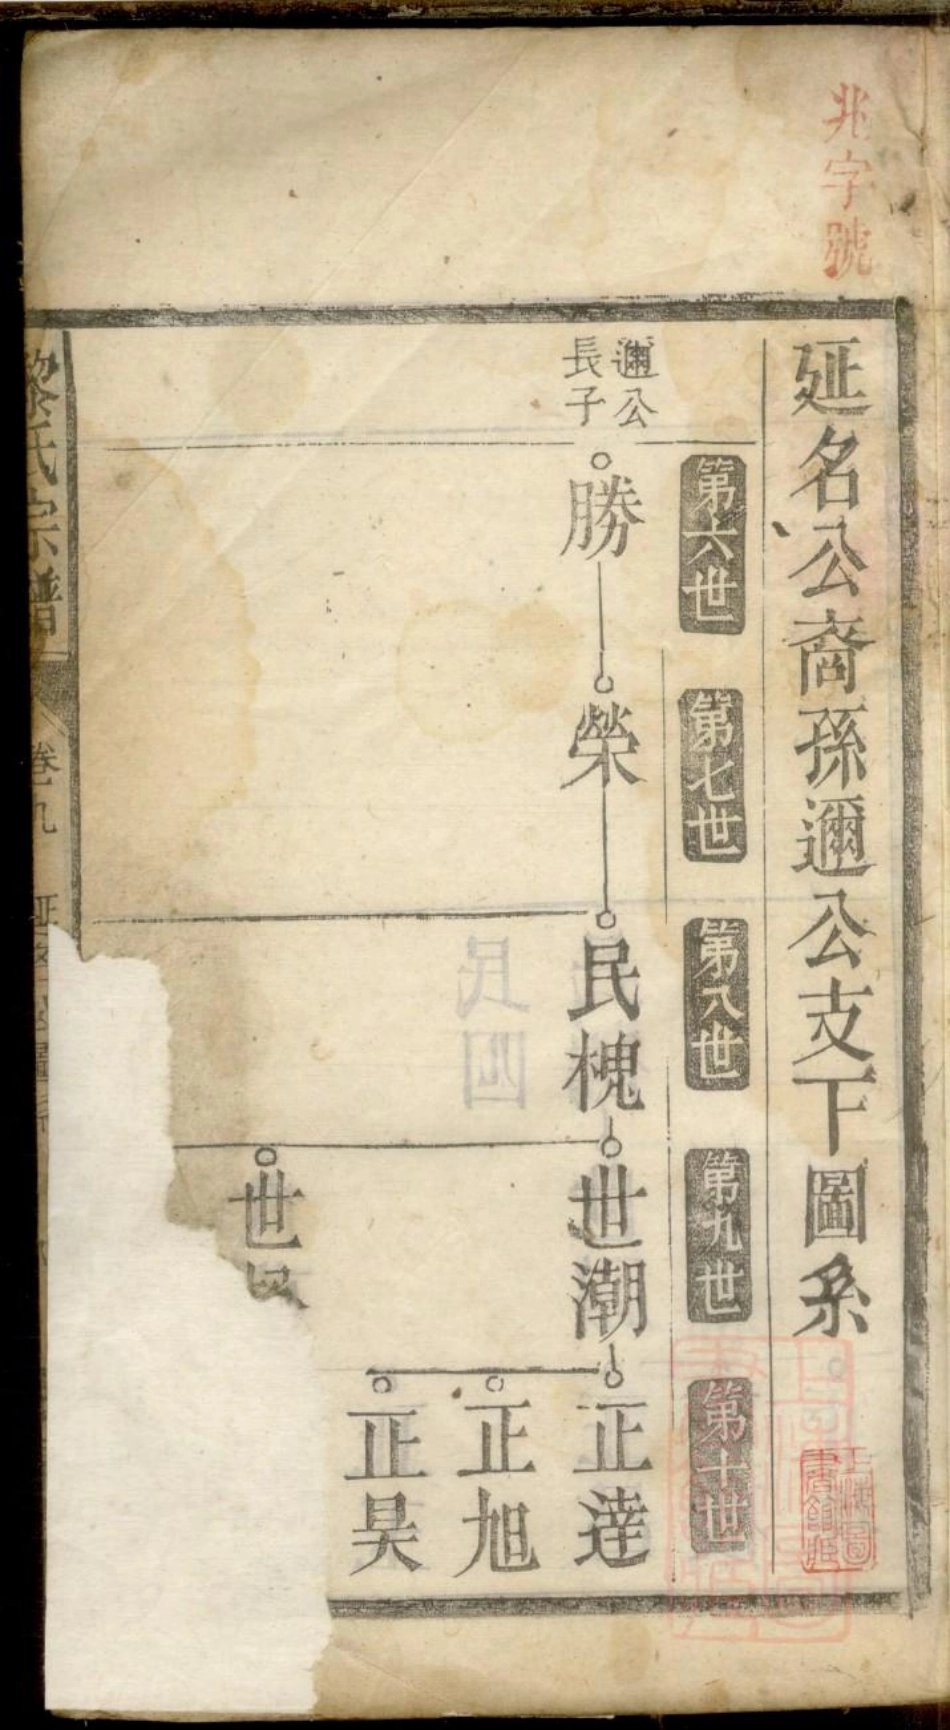 兆字號
延名公裔孫邇公支下圖系
第六世
第七世
第八世
第九世
第十世
邇公
長子
勝
榮
民槐
世潮
正達
正旭
正昊
世
黎氏宗譜
卷九